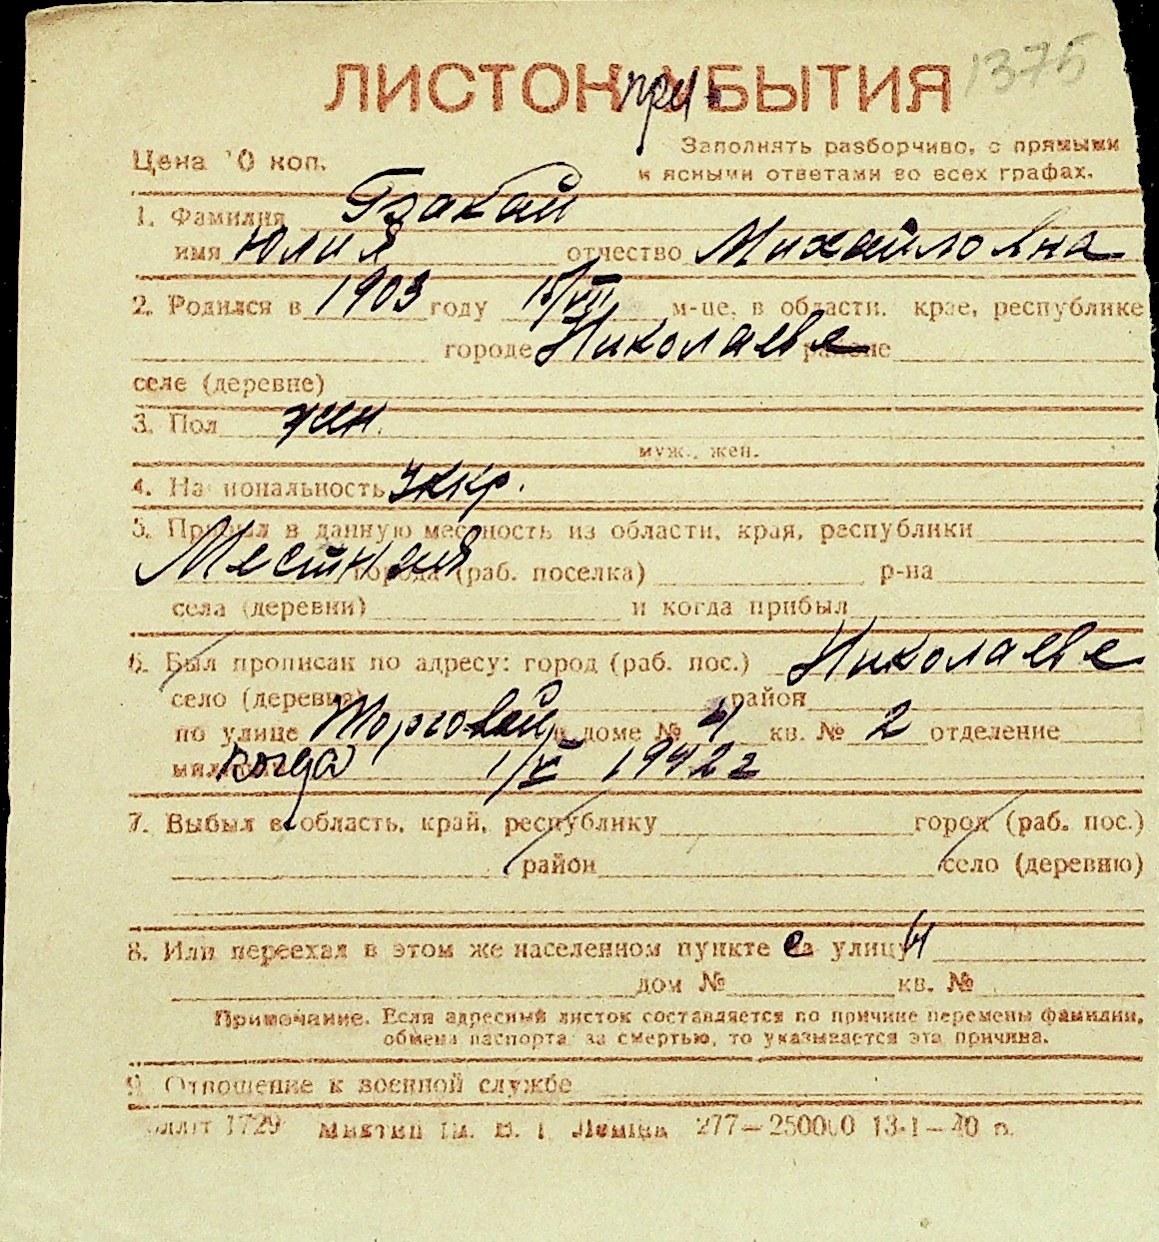 1375
ЛИСТОК при БЫТИЯ
Цена 10 коп.
Заполнять разборчиво, с прямыми
и ясными ответами во всех графах.
1. Фамилия Гзакай
имя Юлия отчество Михайловна
2. Родился в 1903 году 15/VII м-це, в области, крае, республике
городе Николаеве районе
селе (деревне)
3. Пол жен.
муж., жен.
4. Национальность Укр.
5. Прибыл в данную местность из области, края, республики
Местная города (раб. поселка) р-на
села (деревни) и когда прибыл
6. Был прописан по адресу: город (раб. пос.) Николаеве
село (деревня) район
по улице Торговой в доме № 4 кв. № 2 отделение
милиции когда 1/V 1942 г
7. Выбыл в область, край, республику город (раб. пос.)
район село (деревню)
8. Или переехал в этом же населенном пункте с улицы
дом № кв. №
Примечание. Если адресный листок составляется по причине перемены фамилии,
обмена паспорта, за смертью, то указывается эта причина.
9. Отношение к военной службе
1729 ім. В. І. Леніна 277—250000 13-I—40 р.